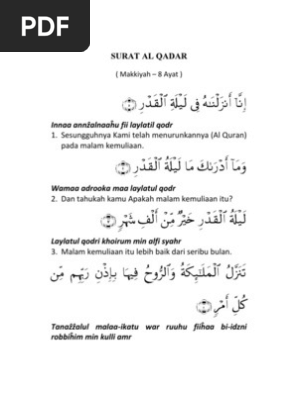 PDF
SURAT AL QADAR
( Makkiyah – 8 Ayat )
إِنَّآ أَنزَلْنَٰهُ فِى لَيْلَةِ ٱلْقَدْرِ ﴿١﴾
Innaa annẑalnaaĥu fii laylatil qodr
1. Sesungguhnya Kami telah menurunkannya (Al Quran)
pada malam kemuliaan.
وَمَآ أَدْرَىٰكَ مَا لَيْلَةُ ٱلْقَدْرِ ﴿٢﴾
Wamaa adrooka maa laylatul qodr
2. Dan tahukah kamu Apakah malam kemuliaan itu?
لَيْلَةُ ٱلْقَدْرِ خَيْرٌ مِّنْ أَلْفِ شَهْرٍ ﴿٣﴾
Laylatul qodri khoirum min alfi syahr
3. Malam kemuliaan itu lebih baik dari seribu bulan.
تَنَزَّلُ ٱلْمَلَٰٓئِكَةُ وَٱلرُّوحُ فِيهَا بِإِذْنِ رَبِّهِم مِّن
كُلِّ أَمْرٍ ﴿٤﴾
Tanaẑẑalul malaa-ikatu war ruuhu fiiĥaa bi-idzni
robbiĥim min kulli amr